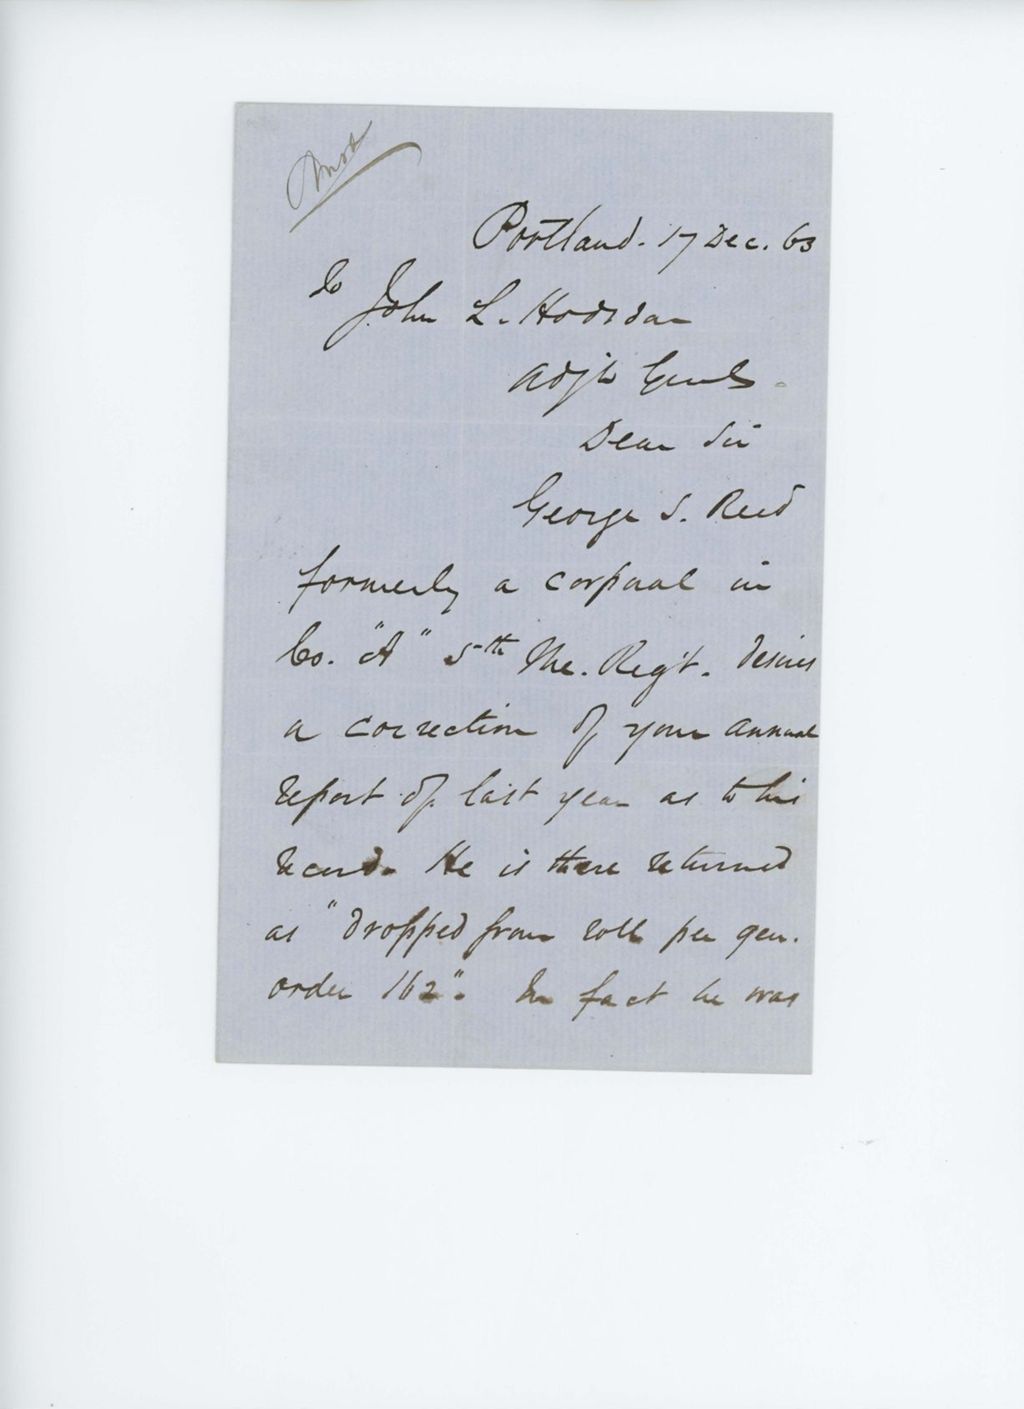 Portland. 17 Dec. 63
To
John L. Hodsdon
Adjt Genl.
Dear Sir
George S. Reed
formerly a corporal in
Co. "A" 5th Me. Reg't. desires
a correction of your annual
report of last year as to his
record. He is there returned
as "dropped from roll per gen.
order 162". In fact he was